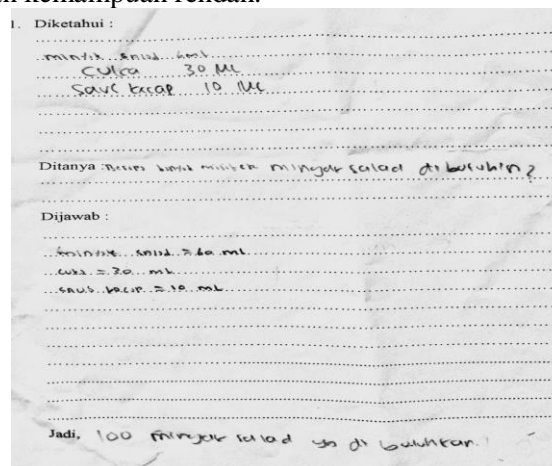 kemampuan rendah.
1. Diketahui :
minyak salad 60ml
cuka 30 ML
Saus kecap 10 ML
Ditanya : banyak minyak salad di butuhin?
Dijawab :
minyak salad = 60 ml
cuka = 30 ml
saus kecap = 10 ml
Jadi, 100 minyak salad yg di butuhkan.